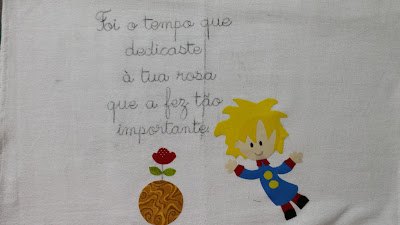 Foi o tempo que
dedicaste
à tua rosa
que a fez tão
importante.